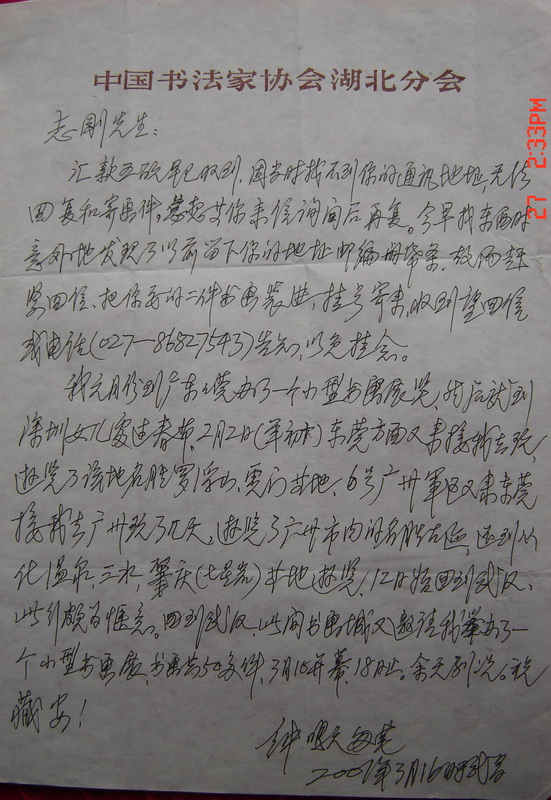 中国书法家协会湖北分会
志刚先生：
汇款五百早已收到，因当时找不到你的通讯地址，无法
回复和寄画件。想想等你来信询问后再复。今早找东西时
意外地发现了以前留下你的地址邮编册，故而赶
紧回信，把你要的二件书画装典，挂号寄来，收到望回信
或电话(027—86827543)告知，以免挂念。
我元月份到广东东莞办了一个小型书画展览，然后就到
深圳女儿家过春节，2月2日(年初)东莞方面又来接我去玩，
游览了该地名胜罗浮山、等地，6号广州军区又来东莞
接我去广州玩了几天。游览了广州市内的名胜古迹，还到从
化温泉、三水、肇庆(七星岩)等地游览，12日始回到武汉、
此行颇为惬意。回到武汉，此间书画城又邀请我举办了一
个小型书画展，书画共50多件，3月10开幕，18日止。余无别说。祝
藏安！
钟鸣天
2007年3月16日于武昌
27 2:33PM